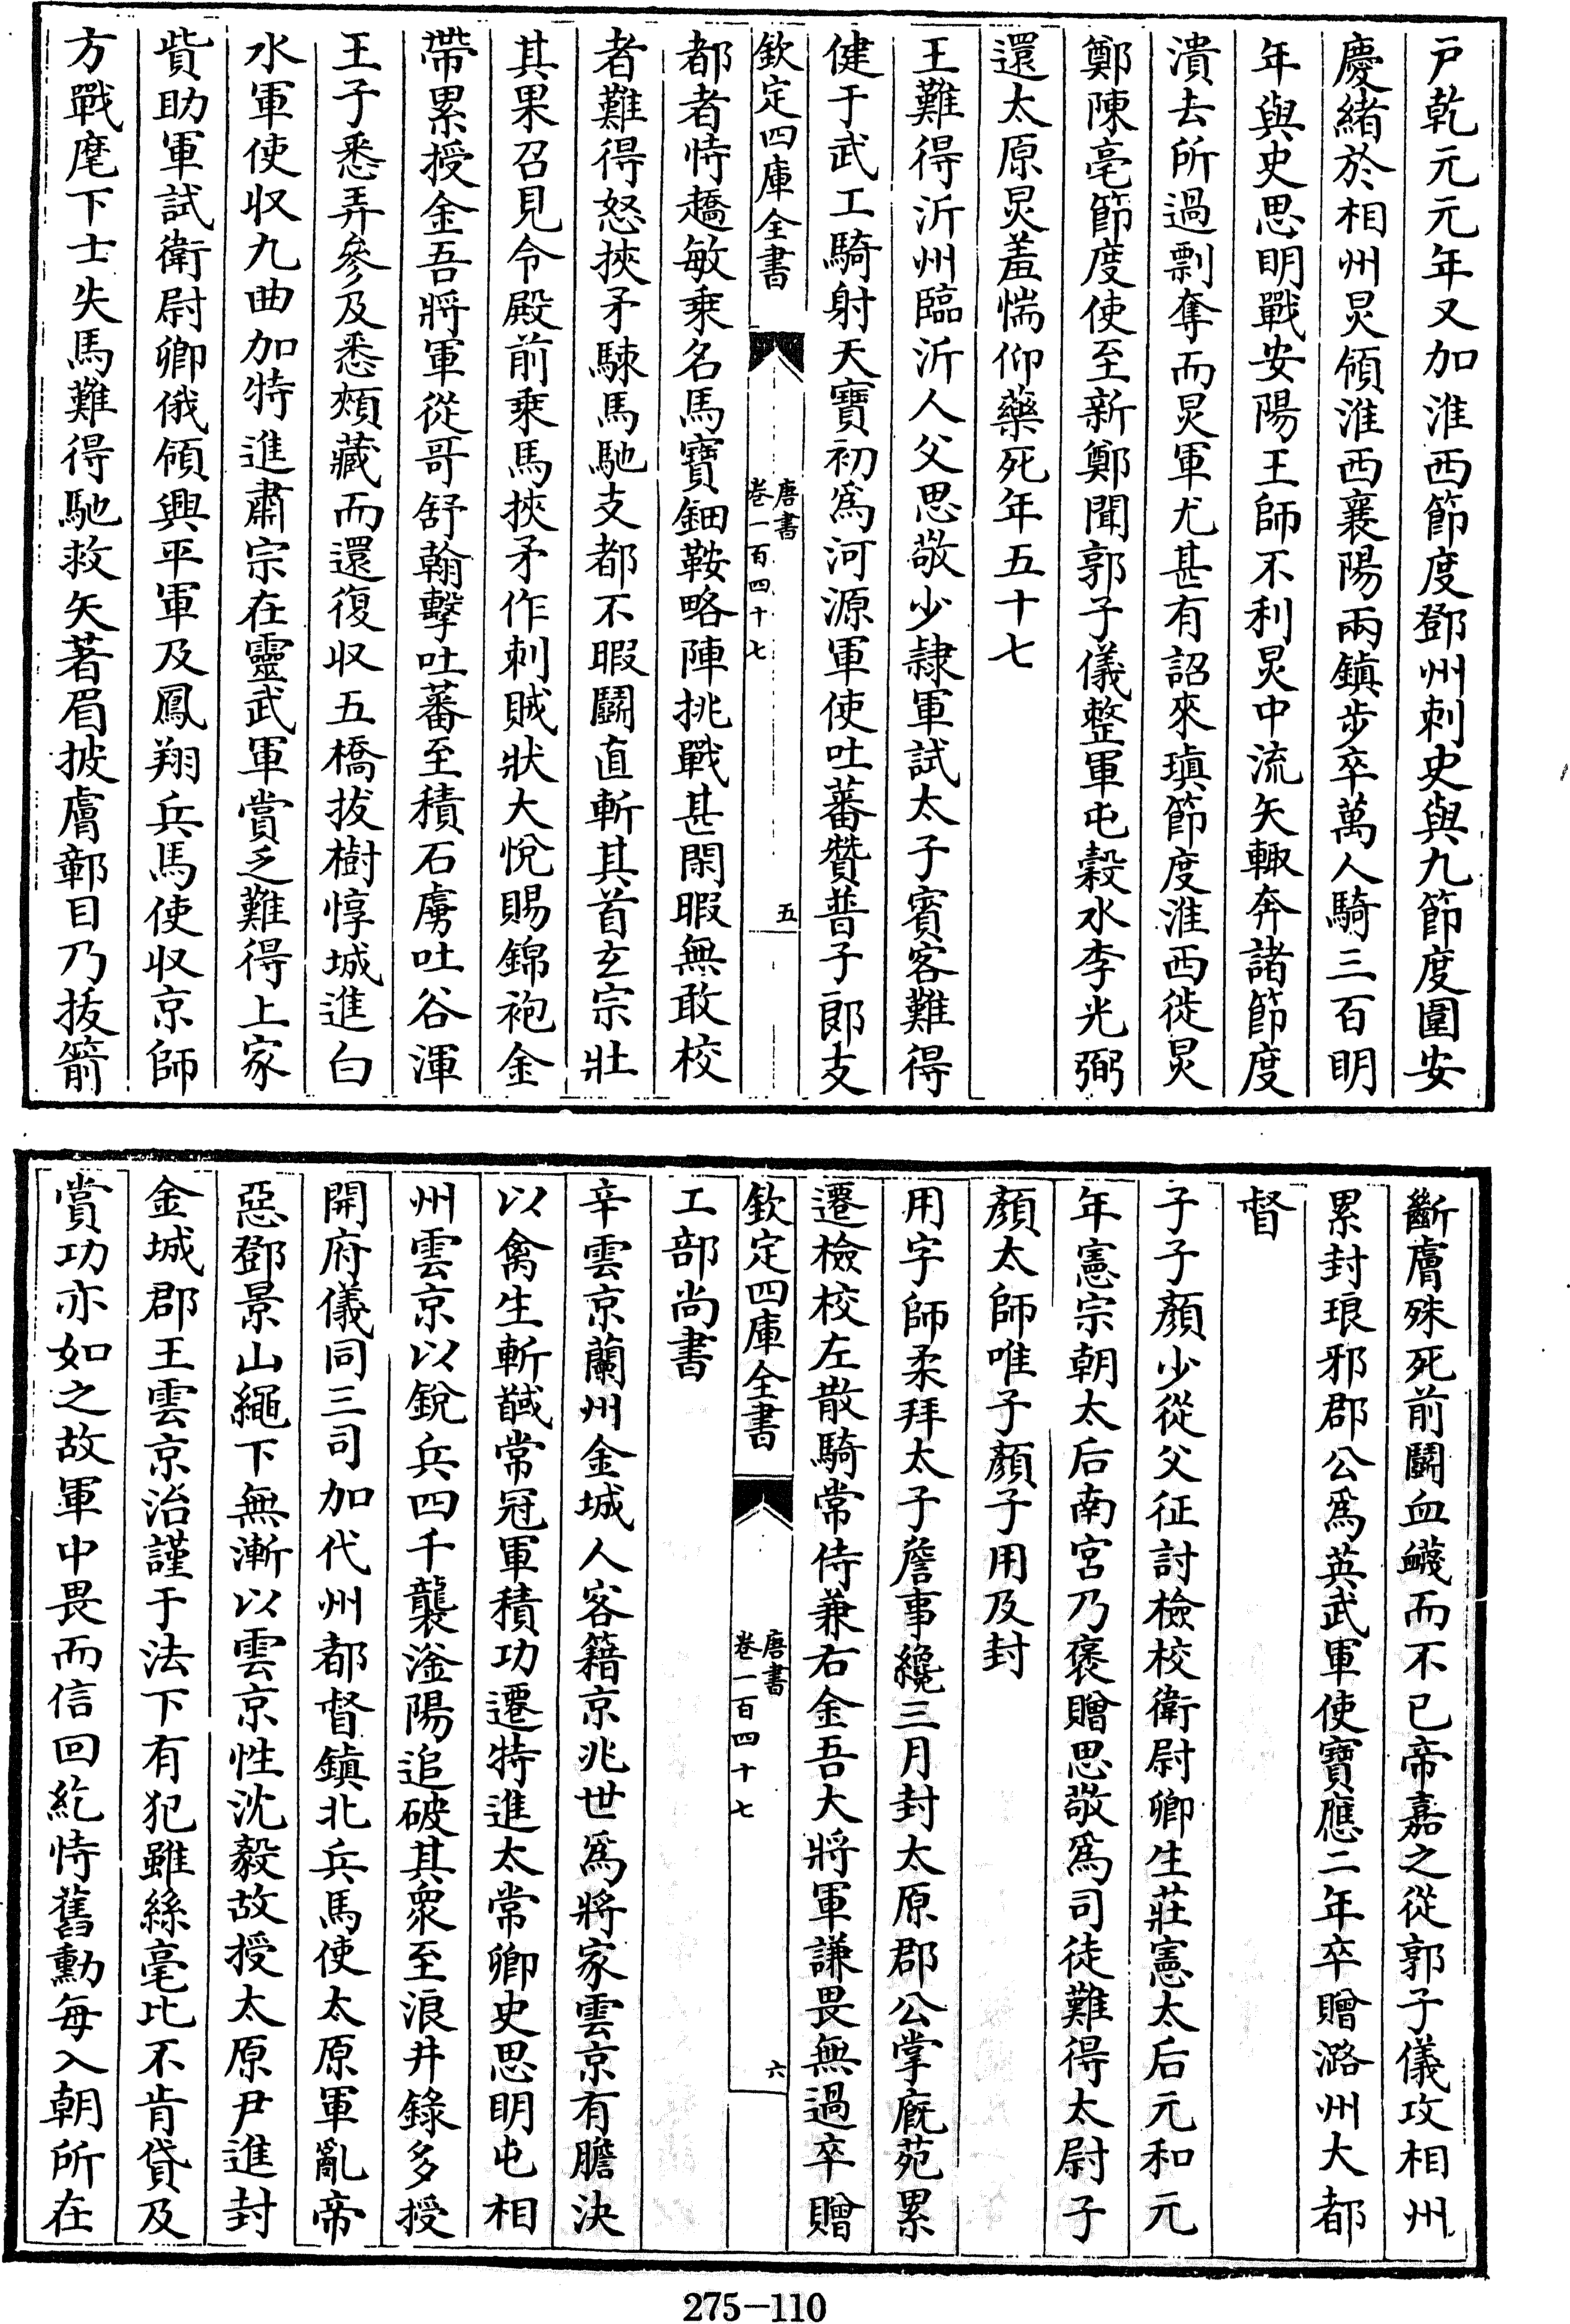 戸乾元元年又加淮西節度鄧州刺史與九節度圍安
慶緒於相州炅領淮西襄陽兩鎮步卒萬人騎三百明
年與史思明戰安陽王師不利炅中流矢輒奔諸節度
潰去所過剽奪而炅軍尤甚有詔來瑱節度淮西徙炅
鄭陳亳節度使至新鄭聞郭子儀整軍屯穀水李光弼
還太原炅羞惴仰藥死年五十七
王難得沂州臨沂人父思敬少隷軍試太子賓客難得
健于武工騎射天寶初為河源軍使吐蕃贊普子郎支
欽定四庫全書
唐書
卷一百四十七
五
都者恃趫敏乗名馬寶鈿鞍略陣挑戰甚閑暇無敢校
者難得怒挾矛駷馬馳支都不暇鬬直斬其首玄宗壯
其果召見令殿前乗馬挾矛作刺賊狀大悅賜錦袍金
帶累授金吾將軍從哥舒翰擊吐蕃至積石虜吐谷渾
王子悉弄參及悉頰藏而還復収五橋拔樹惇城進白
水軍使収九曲加特進肅宗在靈武軍賞乏難得上家
貲助軍試衛尉卿俄領興平軍及鳳翔兵馬使収京師
方戰麾下士失馬難得馳救矢著眉披膚鄣目乃拔箭
斷膚殊死前鬬血衊而不已帝嘉之從郭子儀攻相州
累封琅邪郡公為英武軍使寶應二年卒贈潞州大都
督
子子顏少從父征討檢校衛尉卿生莊憲太后元和元
年憲宗朝太后南宮乃褒贈思敬為司徒難得太尉子
顏太師唯子顏子用及封
用字師柔拜太子詹事纔三月封太原郡公掌廐苑累
遷檢校左散騎常侍兼右金吾大將軍謙畏無過卒贈
欽定四庫全書
唐書
卷一百四十七
六
工部尚書
辛雲京蘭州金城人客籍京兆世為將家雲京有膽決
以禽生斬馘常冠軍積功遷特進太常卿史思明屯相
州雲京以銳兵四千襲滏陽追破其衆至浪井錄多授
開府儀同三司加代州都督鎮北兵馬使太原軍亂帝
惡鄧景山繩下無漸以雲京性沈毅故授太原尹進封
金城郡王雲京治謹于法下有犯雖絲毫比不肯貸及
賞功亦如之故軍中畏而信回紇恃舊勳每入朝所在
275-110